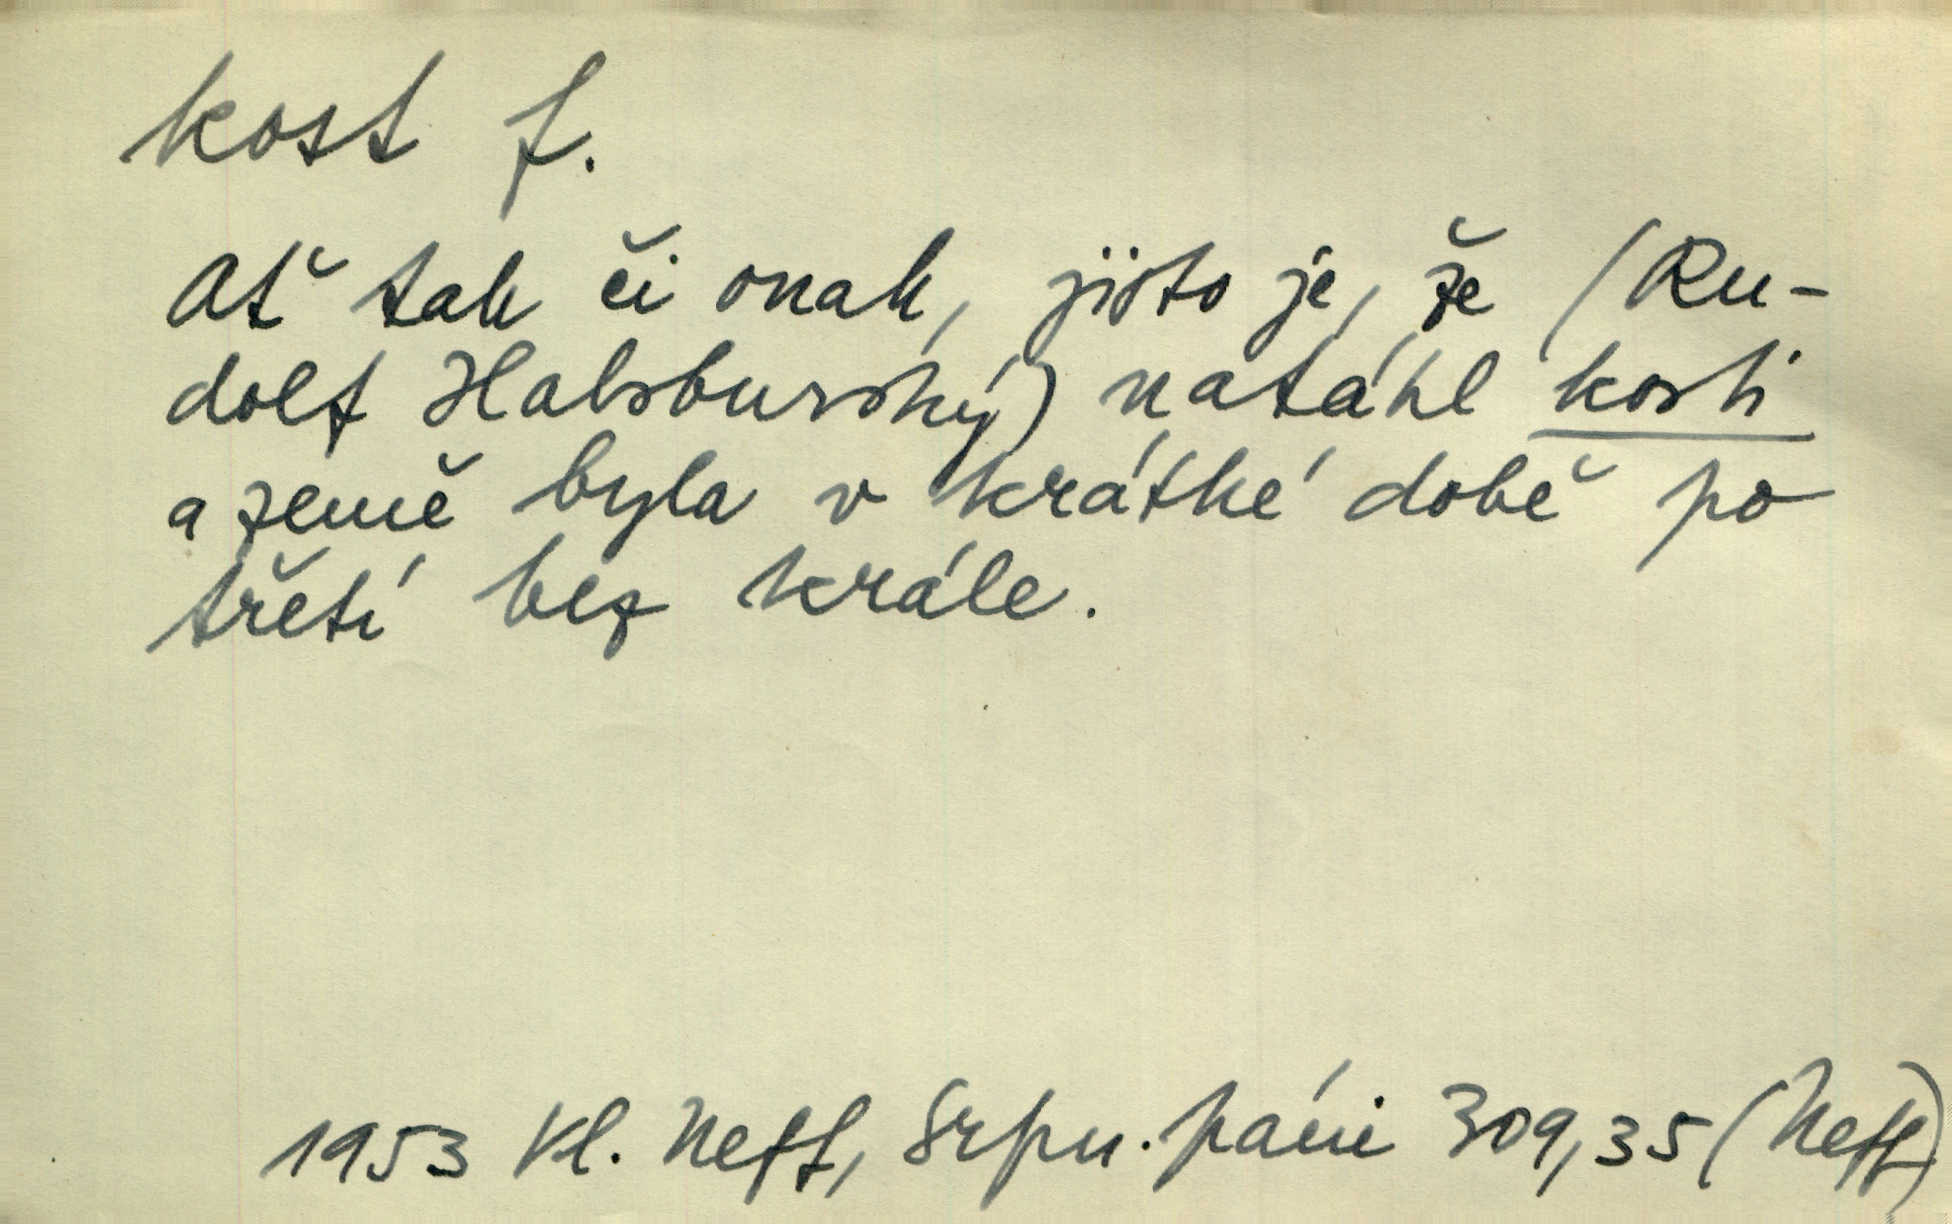 kost f.
Ať tak či onak, jisto je, že (Ru-
dolf Habsburský) natáhl kosti
a země byla v krátké době po
třetí bez krále.
1953 Vl. Neff, Srpn. páni 309,35 (Neff)